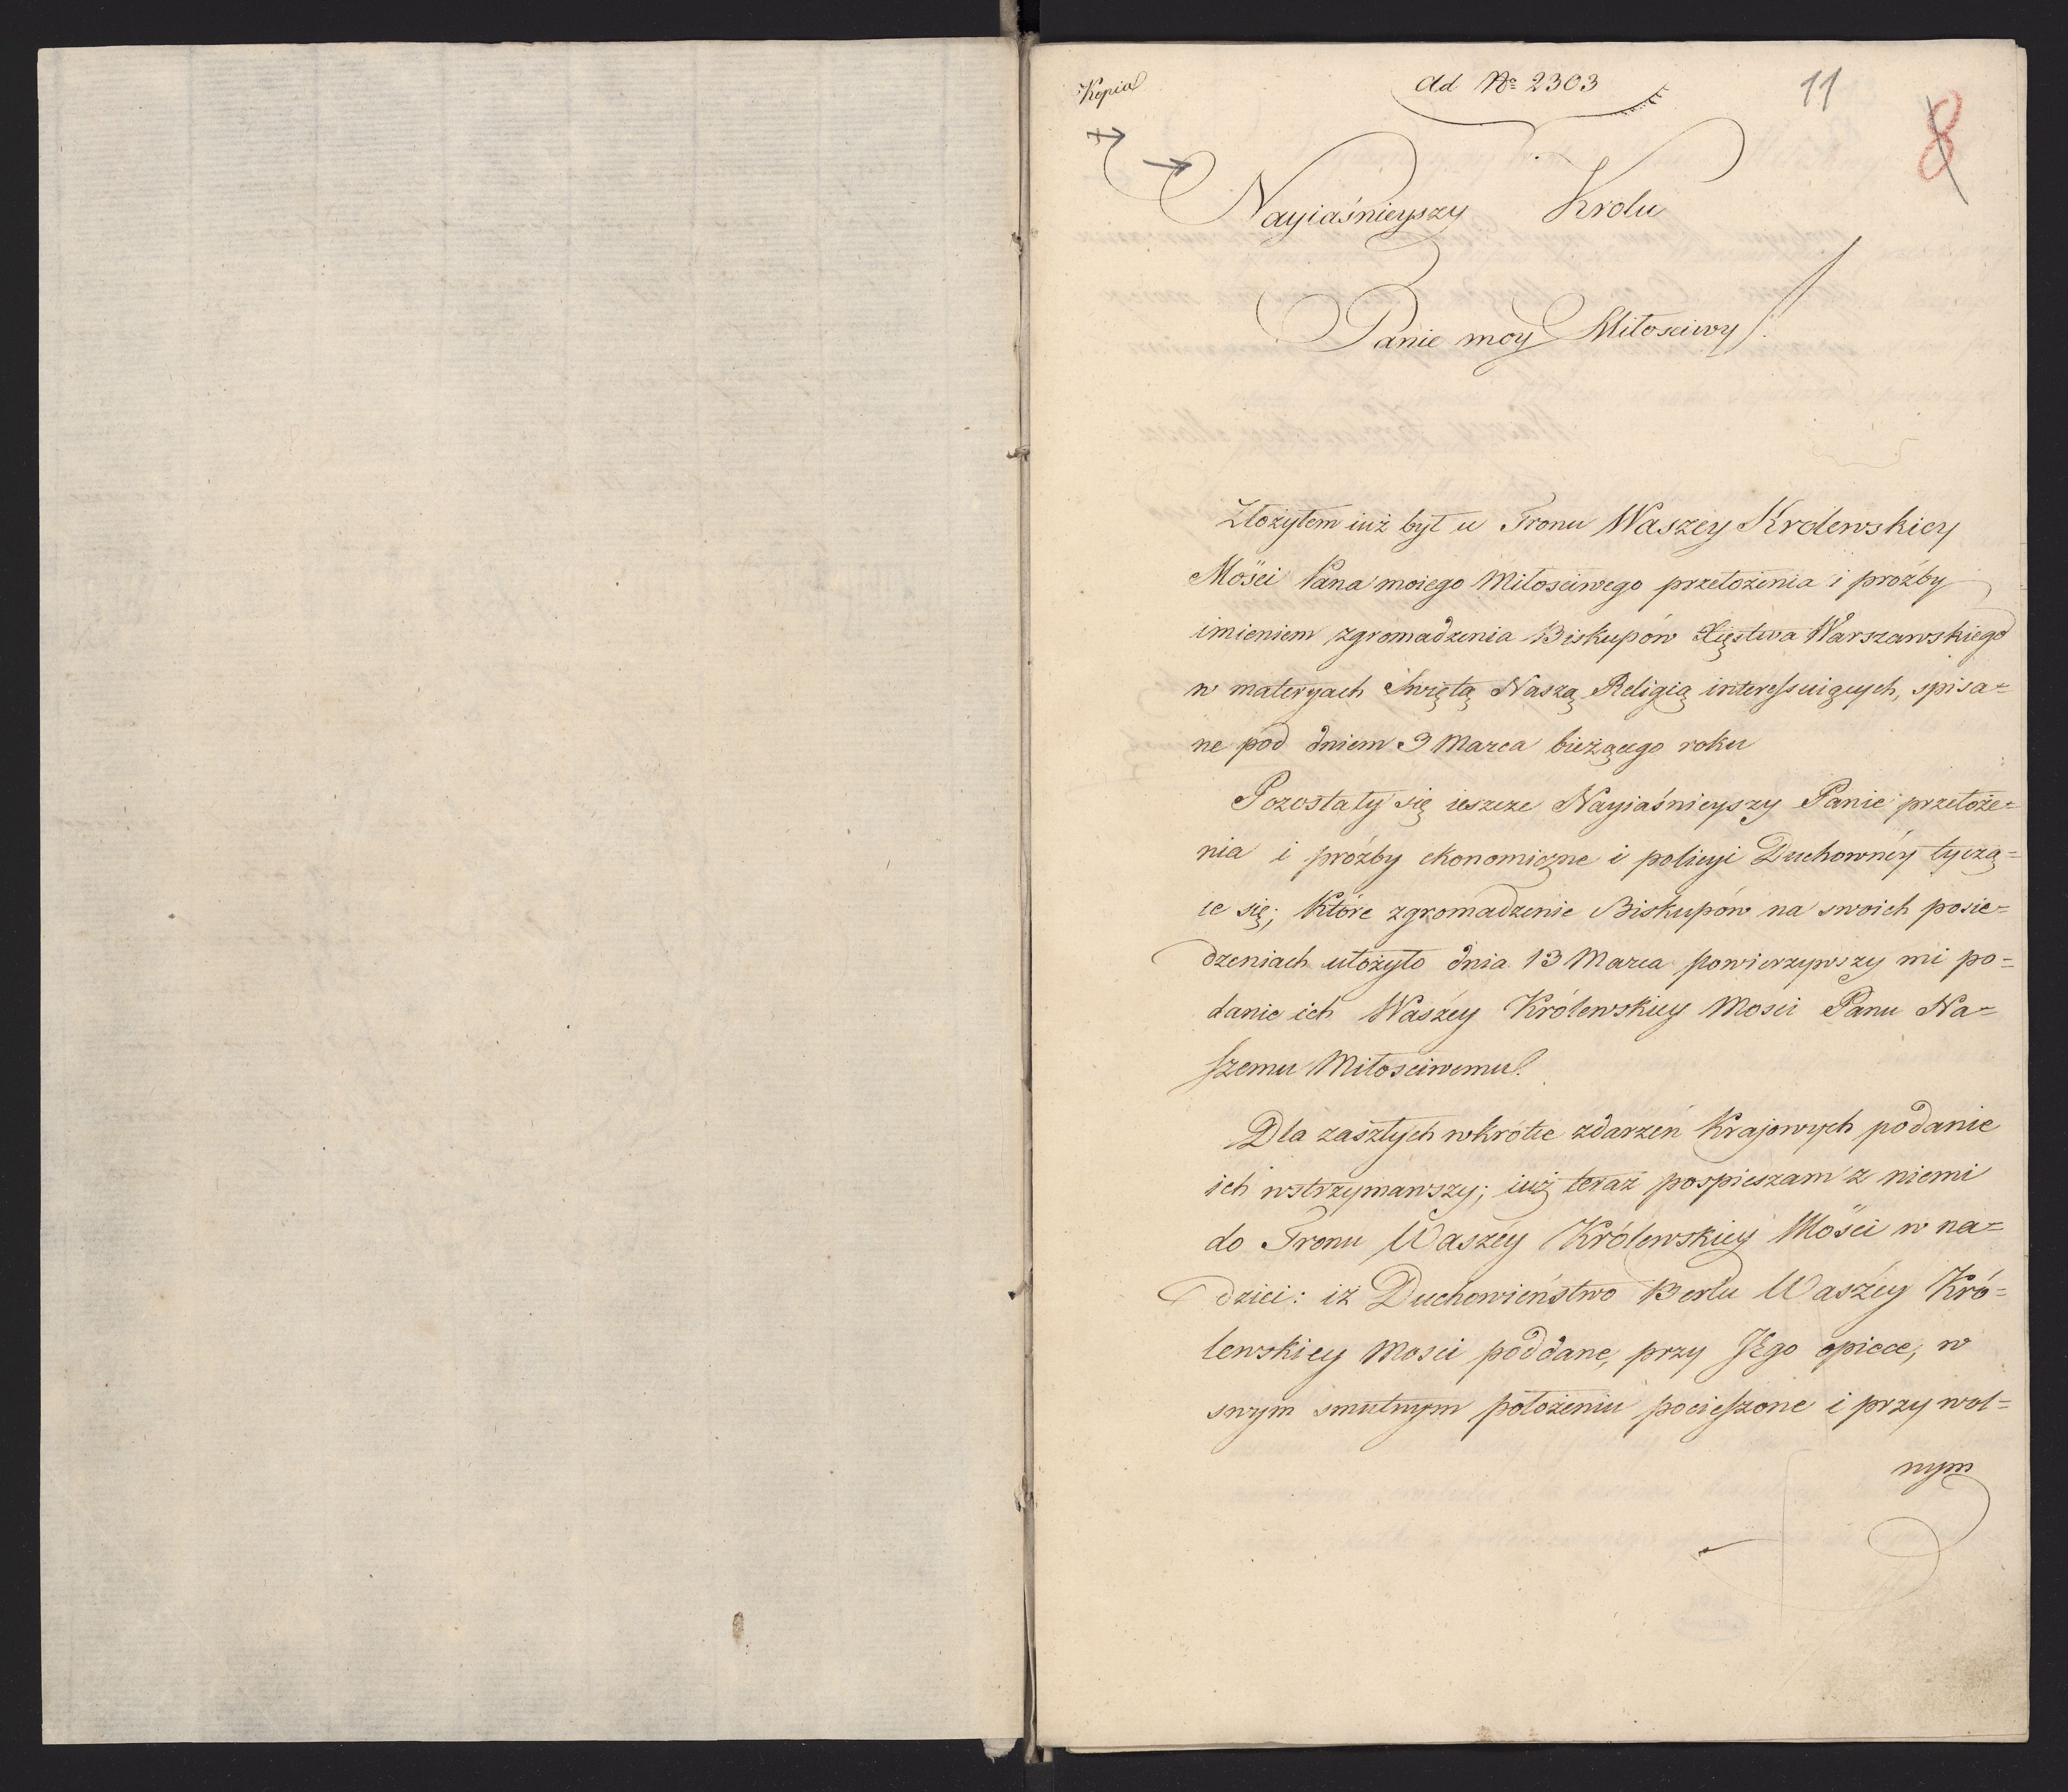 Kopia
Ad No 2303
11
8
Nayiaśnieyszy Krolu
Panie moy Miłosciwy!
Złożyłem iuż był u Tronu Waszey Krolewskiey
Mości Pana moiego Miłosciwego przełożenia i prożby
imieniem zgromadzenia Biskupów Xięstwa Warszawskiego
w materyach Swiętą Naszą Religią interessuiących, spisa=
ne pod dniem 3 Marca bieżącego roku
Pozostały się ieszcze Nayiaśnieyszy Panie przełoże=
nia i próżby ekonomiczne i policyi Duchownéy tyczą=
ce się; które zgromadzenie Biskupów na swoich posie=
dzeniach ułożyło dnia 13 Marca powierzywszy mi po=
danie ich Waszéy Królewskiey Mosci Panu Na=
szemu Miłosciwemu!
Dla zaszłych wkrótce zdarzeń Krajowych podanie
ich wstrzymawszy; iuż teraz pospieszam z niemi
do Tronu Waszéy Królewskiey Mości w na=
dziei: iż Duchowieństwo Berłu Waszéy Kró=
lewskiey Mosci poddane, przy JEgo opiece, w
swym smutnym położeniu pocieszone i przy wol=
nym